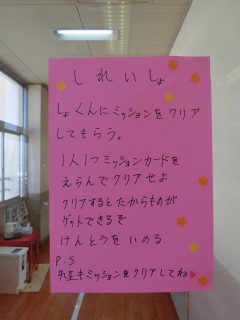 しれいしょ
しょくんにミッションをクリア
してもらう。
1人1つミッションカードを
えらんでクリアせよ
クリアするとたからものが
ゲットできるぞ
けんとうをいのる
P.S
先生もミッションをクリアしてね